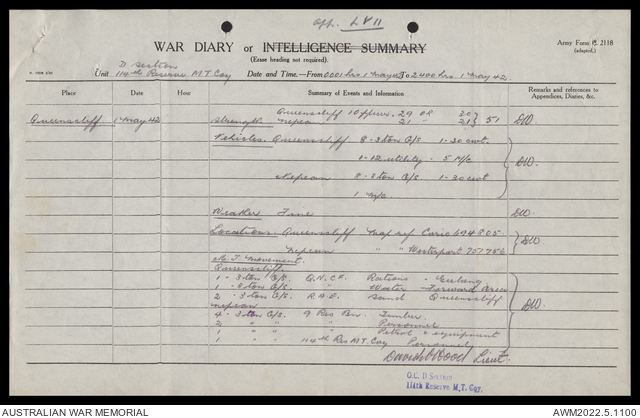 App. LVII
WAR DIARY or INTELLIGENCE SUMMARY
(Erase heading not required).
Army Form C. 2118
(adapted.)
D Section
Unit 114th Reserve M.T. Coy Date and Time—From 0001 hrs 1 May 42 To 2400 hrs. 1 May 42.
Place Date Hour Summary of Events and Information Remarks and references to Appendices, Diaries, &c.
Queenscliff 1 May 42 Strength Queenscliff 1 Officer 29 OR 30
Nepean 21 " 21 } 51 DW.
Vehicles. Queenscliff 8-3ton G/S 1-30 cwt.
1-12 utility - 5 M/C DW.
Nepean 8-3ton G/S 1-30 cwt
1 M/C
Weather Fine DW.
Locations. Queenscliff Map ref Corio 694805
Nepean " Westernport 757756 DW.
M.T. Movement.
Queenscliff
1 - 3ton G/S. Rations -
1 - 3ton G/S. " Water - Forward Area
2 - 3ton G/S. R.A.E. Sand Queenscliff
Nepean DW.
4 - 3ton G/S. 9 Res Bn. Timber
2 " " " Personnel
1 " " Petrol & equipment
1 " 114th Res M.T. Coy Personnel
David Wood Lieut.
O.C. D Section
114th Reserve M.T. Coy.
AUSTRALIAN WAR MEMORIAL
AWM2022.5.1100